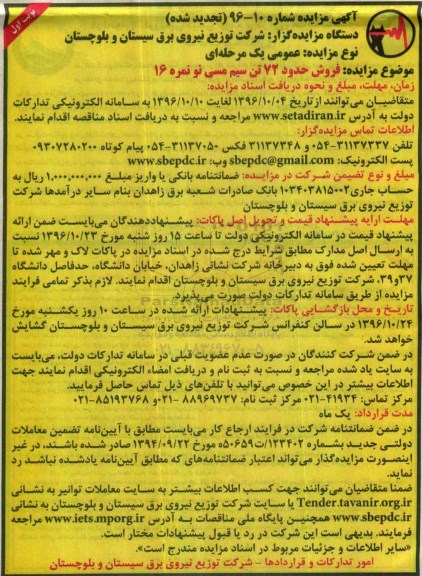 نوبت اول
آگهی مزایده شماره ۱۰-۹۶ (تجدید شده)
دستگاه مزایده‌گزار: شرکت توزیع نیروی برق سیستان و بلوچستان
نوع مزایده: عمومی یک مرحله‌ای
موضوع مزایده: فروش حدود ۷۲ تن سیم مسی نو نمره ۱۶
زمان، مهلت، مبلغ و نحوه دریافت اسناد مزایده:
متقاضیان می‌توانند از تاریخ ۱۳۹۶/۱۰/۰۴ لغایت ۱۳۹۶/۱۰/۱۰ به سامانه الکترونیکی تدارکات
دولت به آدرس www.setadiran.ir مراجعه و نسبت به دریافت اسناد مناقصه اقدام نمایند.
اطلاعات تماس مزایده‌گزار:
تلفن ۳۱۱۳۷۳۳۷-۰۵۴ و ۳۱۱۳۷۳۴۸ فکس ۳۱۱۳۷۰۵۰-۰۵۴ پیام کوتاه ۰۹۳۰۷۲۸۰۲۰۰
پست الکترونیک: sbepdc@gmail.com وب: www.sbepdc.ir
مبلغ و نوع تضمین شرکت در مزایده: ضمانتنامه بانکی یا واریز مبلغ ۱,۰۰۰,۰۰۰,۰۰۰ ریال به
حساب جاری ۰۱۰۳۴۰۳۸۱۵۰۰۲ بانک صادرات شعبه برق زاهدان بنام سایر درآمدها شرکت
توزیع نیروی برق سیستان و بلوچستان
مهلت ارایه پیشنهاد قیمت و تحویل اصل پاکات: پیشنهاددهندگان می‌بایست ضمن ارائه
پیشنهاد قیمت در سامانه الکترونیکی دولت تا ساعت ۱۵ روز شنبه مورخ ۱۳۹۶/۱۰/۲۳ نسبت
به ارسال اصل مدارک مطابق شرایط درج شده در اسناد مزایده در پاکات لاک و مهر شده تا
مهلت تعیین شده فوق به دبیرخانه شرکت نشانی زاهدان، خیابان دانشگاه، حدفاصل دانشگاه
۳۷و۳۹، شرکت توزیع نیروی برق سیستان و بلوچستان اقدام نمایند. لازم بذکر تمامی فرایند
مزایده از طریق سامانه تدارکات دولت صورت می‌پذیرد.
تاریخ و محل بازگشایی پاکات: پیشنهادات ارائه شده در ساعت ۱۰ روز یکشنبه مورخ
۱۳۹۶/۱۰/۲۴ در سالن کنفرانس شرکت توزیع نیروی برق سیستان و بلوچستان گشایش
خواهد شد.
در ضمن شرکت کنندگان در صورت عدم عضویت قبلی در سامانه تدارکات دولت، می‌بایست
به سایت یاد شده مراجعه و نسبت به ثبت نام و دریافت امضاء الکترونیکی اقدام نمایند جهت
اطلاعات بیشتر در این خصوص می‌توانید با تلفن‌های ذیل تماس حاصل فرمایید.
مرکز تماس: ۴۱۹۳۴-۰۲۱ مرکز ثبت نام: ۸۸۹۶۹۷۳۷-۰۲۱ و ۸۵۱۹۳۷۶۸-۰۲۱
مدت قرارداد: یک ماه
در ضمن ضمانتنامه شرکت در فرایند ارجاع کار می‌بایست مطابق با آیین‌نامه تضمین معاملات
دولتی جدید بشماره ۱۲۳۴۰۲/ت۵۰۶۵۹ه مورخ ۱۳۹۴/۰۹/۲۲ صادر شده باشند، در غیر
اینصورت مزایده‌گذار می‌تواند اعتبار ضمانتنامه‌های که مطابق آیین‌نامه یادشده نباشد رد
نماید.
ضمنا متقاضیان می‌توانند جهت کسب اطلاعات بیشتر به سایت معاملات توانیر به نشانی
Tender.tavanir.org.ir یا سایت شرکت توزیع نیروی برق سیستان و بلوچستان به نشانی
www.sbepdc.ir همچنین پایگاه ملی مناقصات به آدرس www.iets.mporg.ir مراجعه
فرمایند. بدیهی است این شرکت در رد یا قبول پیشنهادات مختار است.
«سایر اطلاعات و جزئیات مربوط در اسناد مزایده مندرج است».
امور تدارکات و قراردادها - شرکت توزیع نیروی برق سیستان و بلوچستان